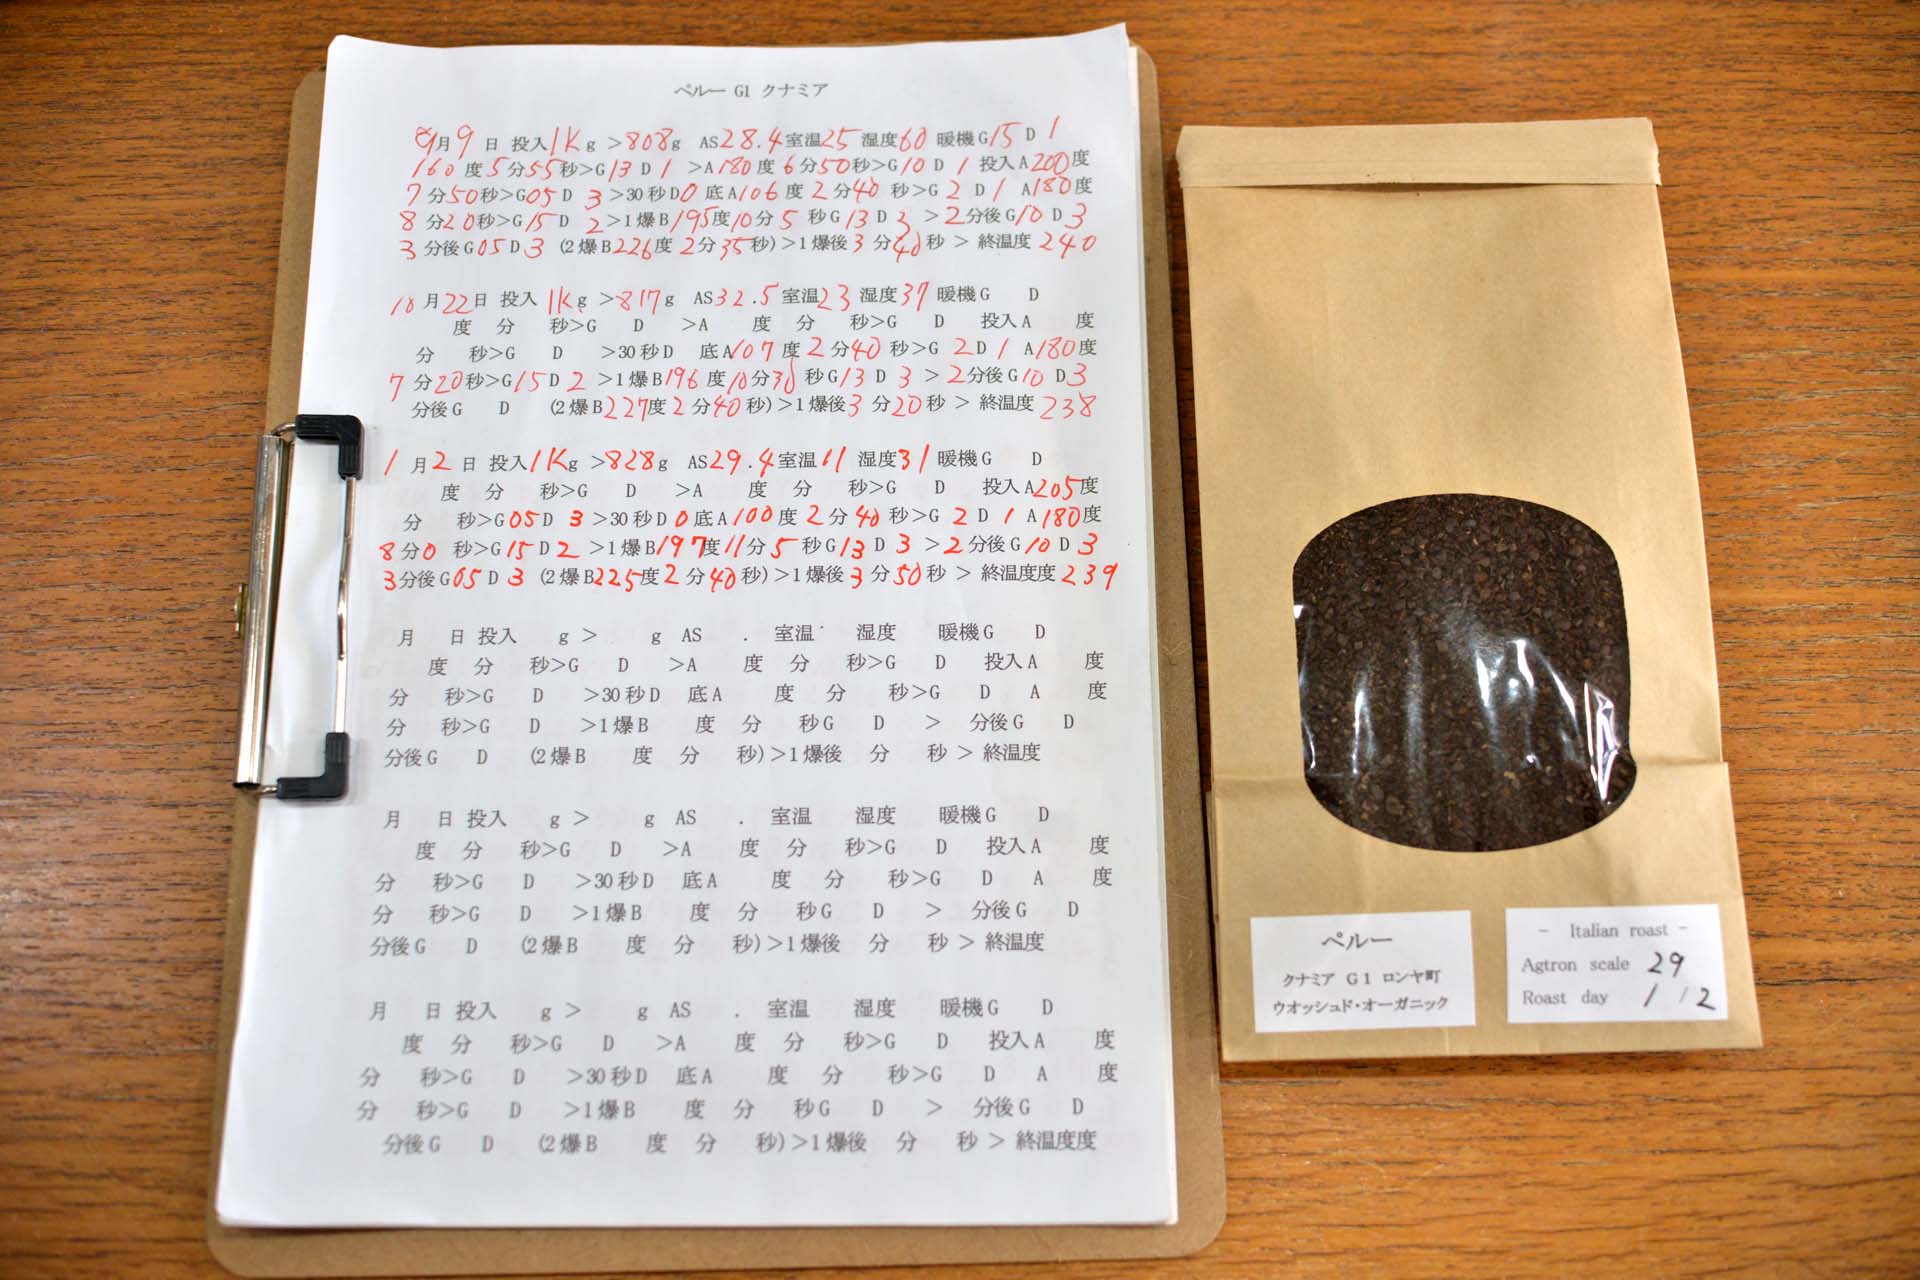 ペルー G1 クナミア
9月9日 投入1Kg >808g AS28.4室温25 湿度60 暖機G15 D 1
160度5分55秒>G13 D 1 >A180度6分50秒>G10 D 1 投入A200度
7分50秒>G05 D 3>30秒D0 底A106度 2分40秒>G 2 D 1 A180度
8分20秒>G15 D 2>1爆B195度10分5秒G13 D 3 >2分後G10 D3
3分後G05 D3 (2爆B226度2分35秒)>1爆後3分40秒 > 終温度240
10月22日 投入 1Kg >817g AS32.5室温23 湿度37 暖機G D
度 分 秒>G D >A 度 分 秒>G D 投入A 度
分 秒>G D >30秒D 底A107度2分40秒>G 2D 1 A180度
7分20秒>G15D 2 >1爆B196度10分30秒G13 D 3 > 2分後G10 D3
分後G D (2爆B227度2分40秒)>1爆後3分20秒 > 終温度238
1月2日 投入1Kg >828g AS29.4室温11 湿度31 暖機G D
度 分 秒>G D >A 度 分 秒>G D 投入A205度
分 秒>G05D 3>30秒D0底A100度2分40秒>G 2 D 1 A180度
8分0秒>G15D 2>1爆B197度11分5秒G13 D 3 >2分後G10 D3
3分後G05 D 3 (2爆B225度2分40秒)>1爆後3分50秒 > 終温度度239
月 日投入 g> g AS . 室温 湿度 暖機G D
度 分 秒>G D >A 度 分 秒>G D 投入A 度
分 秒>G D >30秒D 底A 度 分 秒>G D A 度
分 秒>G D >1爆B 度 分 秒G D > 分後G D
分後G D (2爆B 度 分 秒)>1爆後 分 秒 > 終温度
月 日投入 g> g AS . 室温 湿度 暖機G D
度 分 秒>G D >A 度 分 秒>G D 投入A 度
分 秒>G D >30秒D 底A 度 分 秒>G D A 度
分 秒>G D >1爆B 度 分 秒G D > 分後G D
分後G D (2爆B 度 分 秒)>1爆後 分 秒 > 終温度
月 日投入 g> g AS . 室温 湿度 暖機G D
度 分 秒>G D >A 度 分 秒>G D 投入A 度
分 秒>G D >30秒D 底A 度 分 秒>G D A 度
分 秒>G D >1爆B 度 分 秒G D > 分後G D
分後G D (2爆B 度 分 秒)>1爆後 分 秒 > 終温度度
ペルー
クナミア G1 ロンヤ町
ウオッシュド・オーガニック
- Italian roast -
Agtron scale 29
Roast day 1 / 2